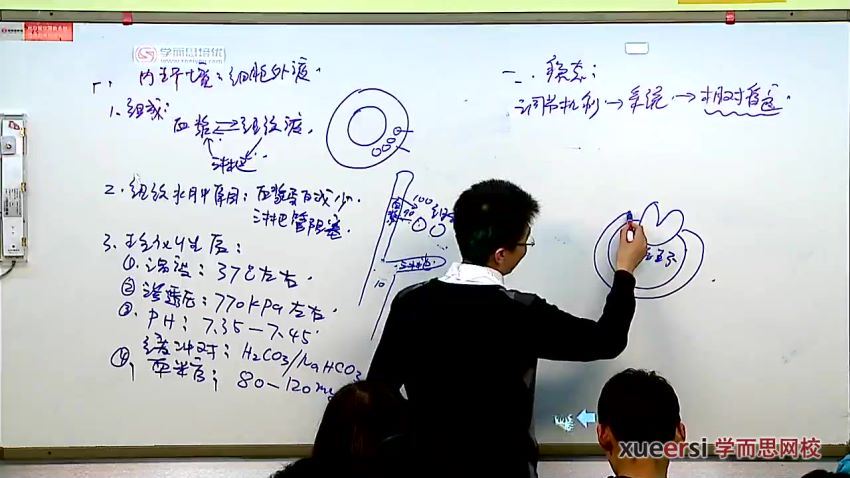 学而思培优
一、内环境：细胞外液.
1、组成：
血浆⇌组织液.
淋巴
2. 组织水肿原因：血浆蛋白减少.
淋巴管阻塞
3. 理化性质：
①. 温度：37℃左右.
② 渗透压：770KPa左右
③. PH：7.35—7.45
缓冲对：H₂CO₃/NaHCO₃
④. 血米唐：80—120mg
血浆
100
90
淋巴
10
二. 稳态：
调节机制→系统→相对稳定.
xueersi 学而思网校